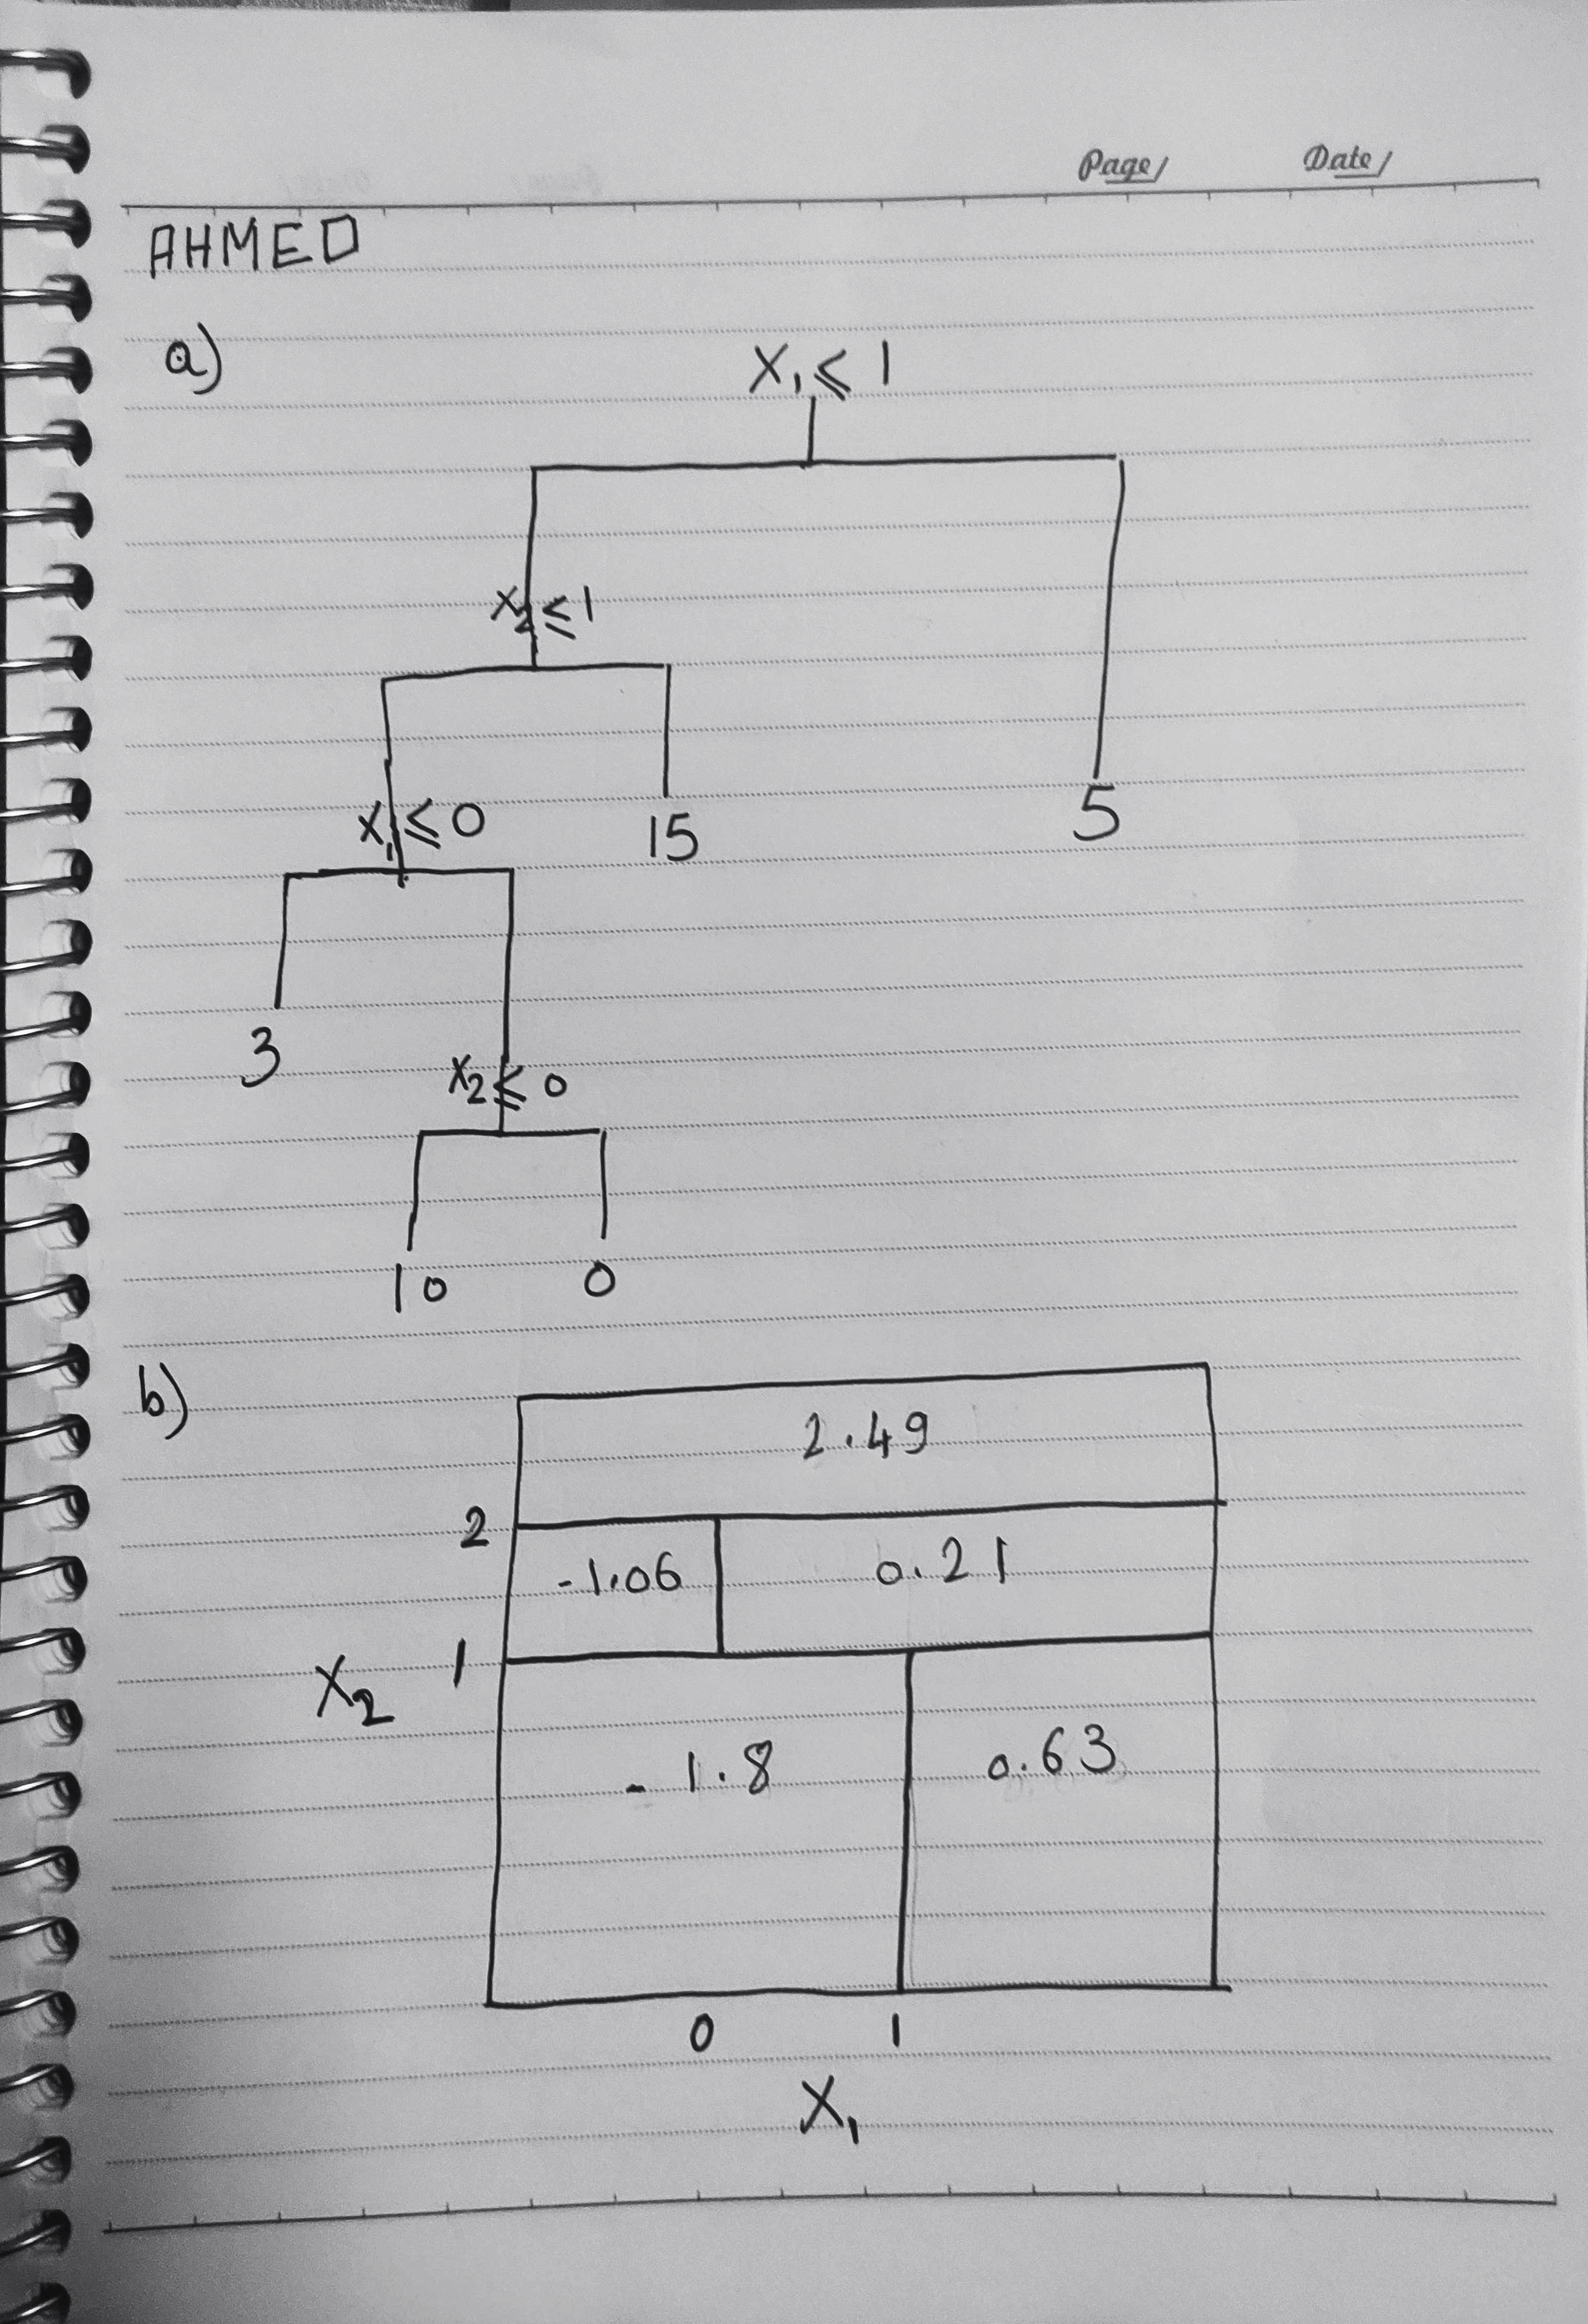 Page/ Date/
AHMED
a)
X₁ ≤ 1
X₂ ≤ 1
X₁ ≤ 0
15
5
3
X₂ ≤ 0
10
0
b)
2.49
2
-1.06
0.21
1
X₂
-1.8
0.63
0
1
X₁